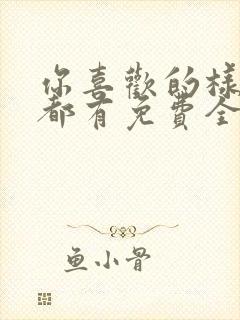 你喜歡的樣
都有免費全
鱼小骨